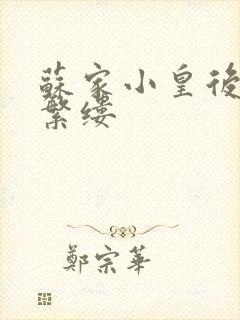 蘇家小皇後
繁缕
鄭宗華